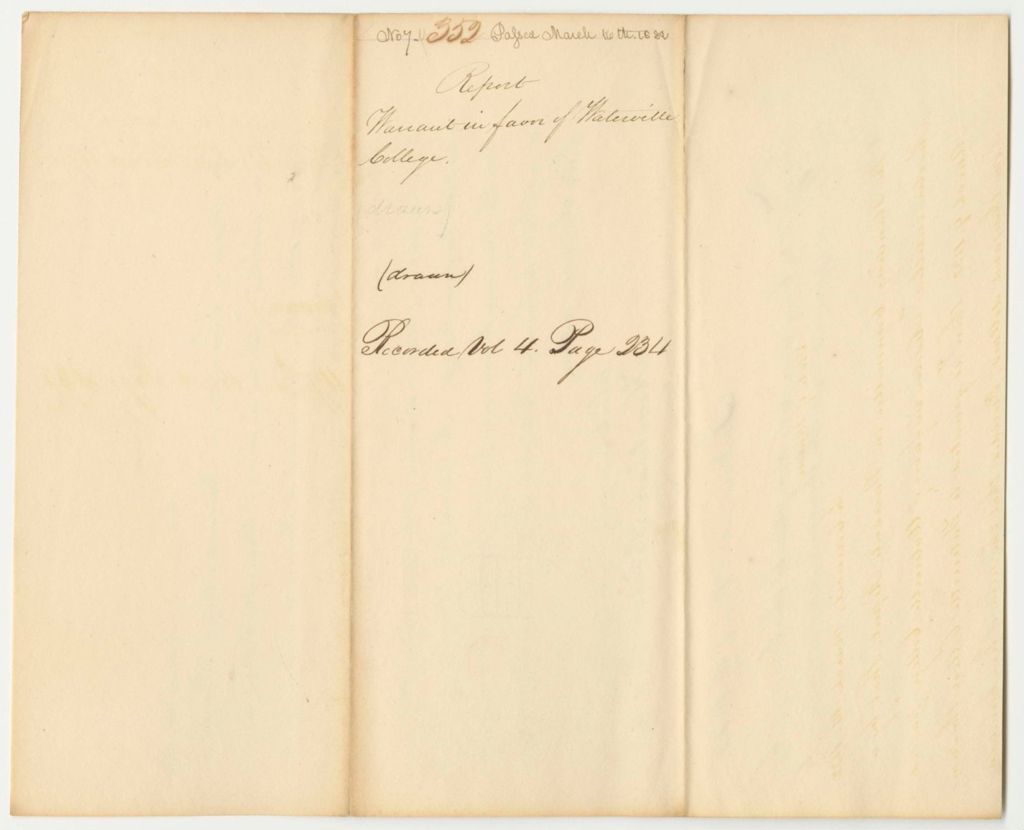 No 7 352 Passed March 16th 1832
Report
Warrant in favor of Waterville
College.
(drawn)
(drawn)
Recorded Vol 4. Page 234